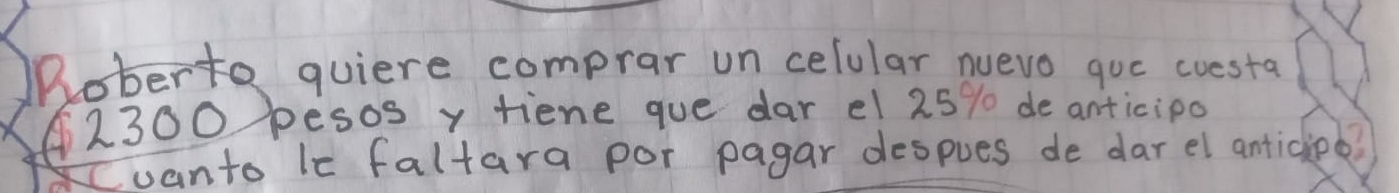 Roberto quiere comprar un celular nuevo que cuesta
$2300 pesos y tiene que dar el 25% de anticipo
¿Cuanto le faltara por pagar despues de dar el anticipo?